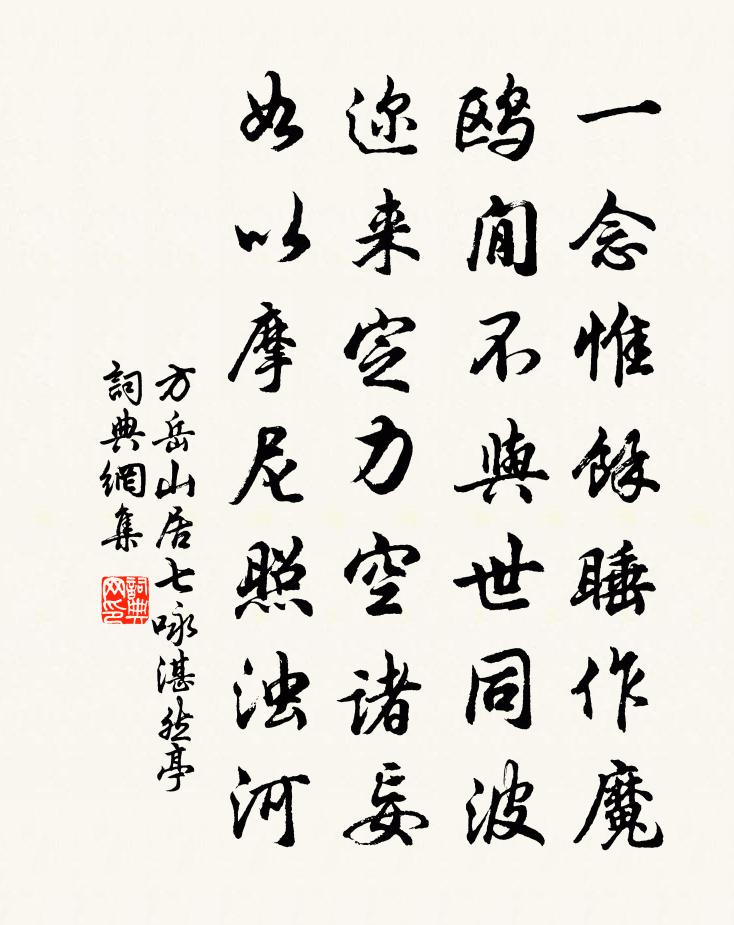 一念惟餘睡作魔
鸥閒不與世同波
迩来定力空诸妄
如以摩尼照浊河
方岳山居七咏湛然亭
詞典網集
詞典网印